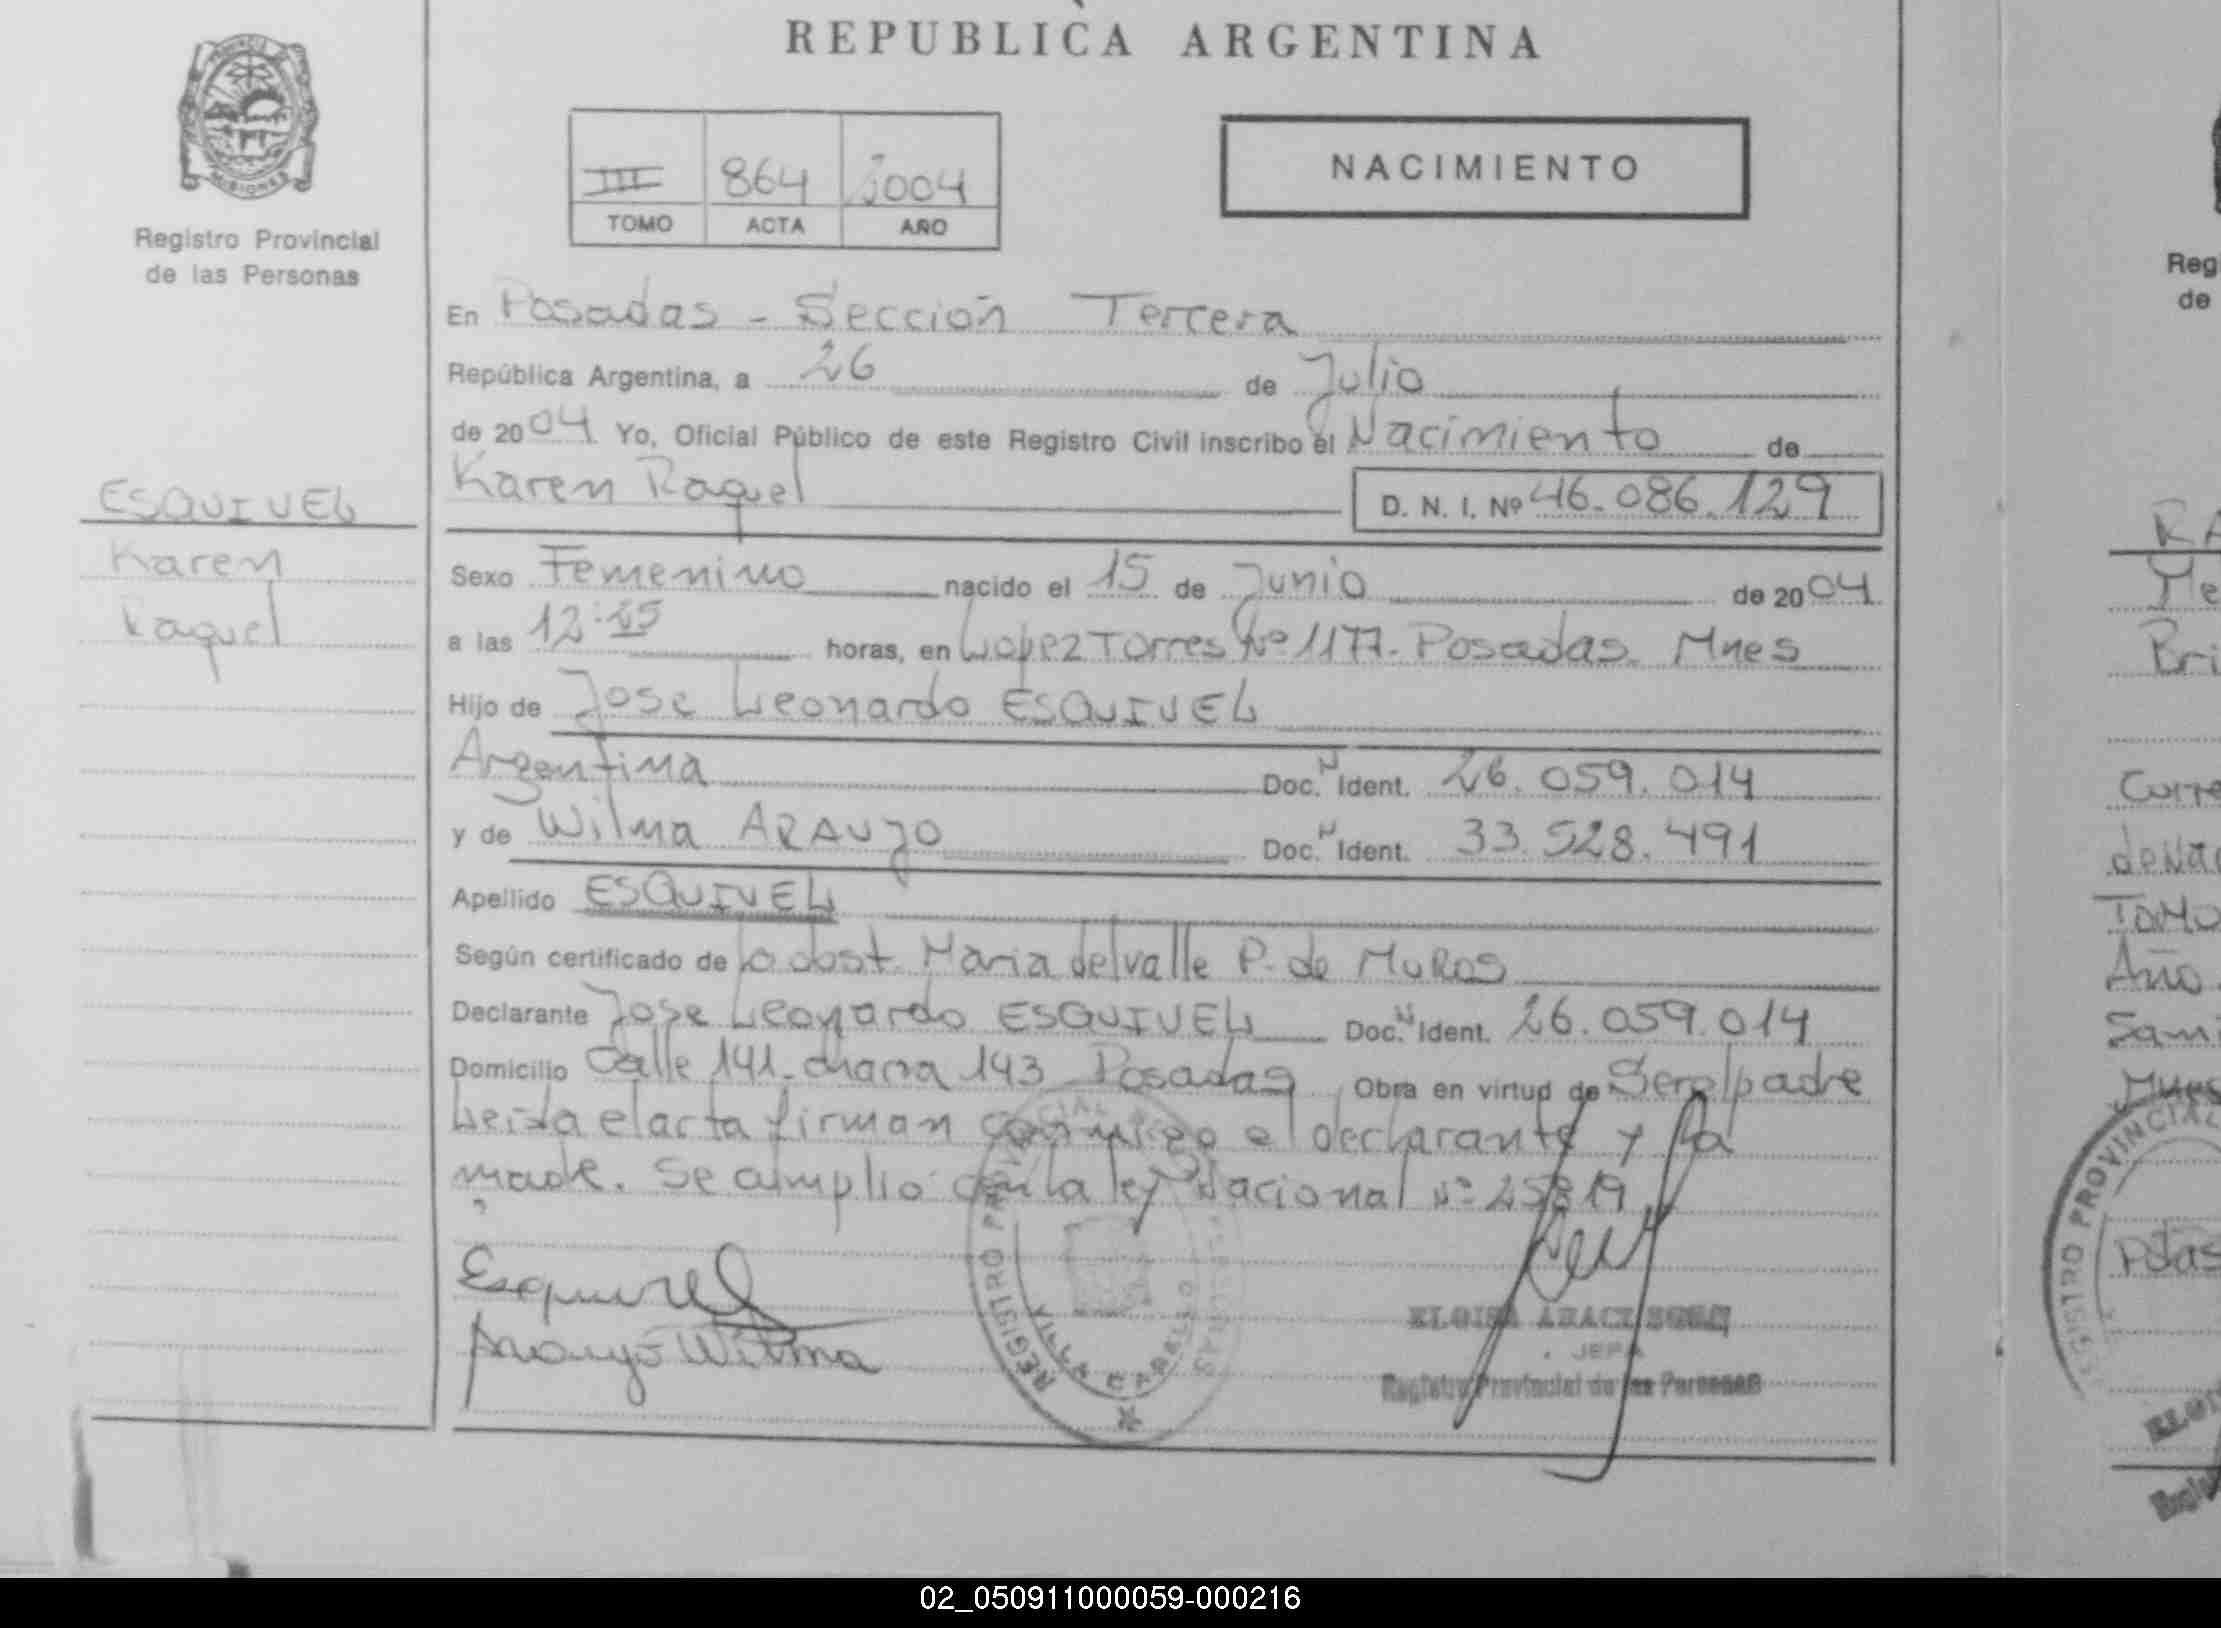 REPUBLICA ARGENTINA
MISIONES
Registro Provincial
de las Personas
III 864 2004
TOMO ACTA AÑO
NACIMIENTO
En Posadas - Sección Tercera
República Argentina, a 26 de Julio
de 2004 Yo, Oficial Público de este Registro Civil inscribo el Nacimiento de
Karen Raquel D. N. I. Nº 46.086.129
ESQUIVEL
Karen
Raquel
Sexo Femenino nacido el 15 de Junio de 2004
a las 12: horas, en Lopez Torres Nº 1177. Posadas. Mnes
Hijo de Jose Leonardo ESQUIVEL
Argentina Doc. N Ident. 26.059.014
y de Wilma ARAUJO Doc. N Ident. 33.528.491
Apellido ESQUIVEL
Según certificado de la obst. Maria del valle P. de MuRos
Declarante Jose Leonardo ESQUIVEL Doc. N Ident. 26.059.014
Domicilio Calle 141. chacra 143 Posadas Obra en virtud de Ser el padre
Leida el acta firman conmigo el declarante y la
madre. Se cumplio con la ley Nacional Nº 25819
Esquivel
Araujo Wilma
REGISTRO PROVINCIAL DE LAS PERSONAS
VILLA CABELLO
ELOISA
JEFA
Registro Provincial de las Personas
Reg
de
RA
Me
Bri
Corre
de Nac
TOMO
Año
Sani
Mnes
REGISTRO PROVINCIAL
Posas
02_050911000059-000216